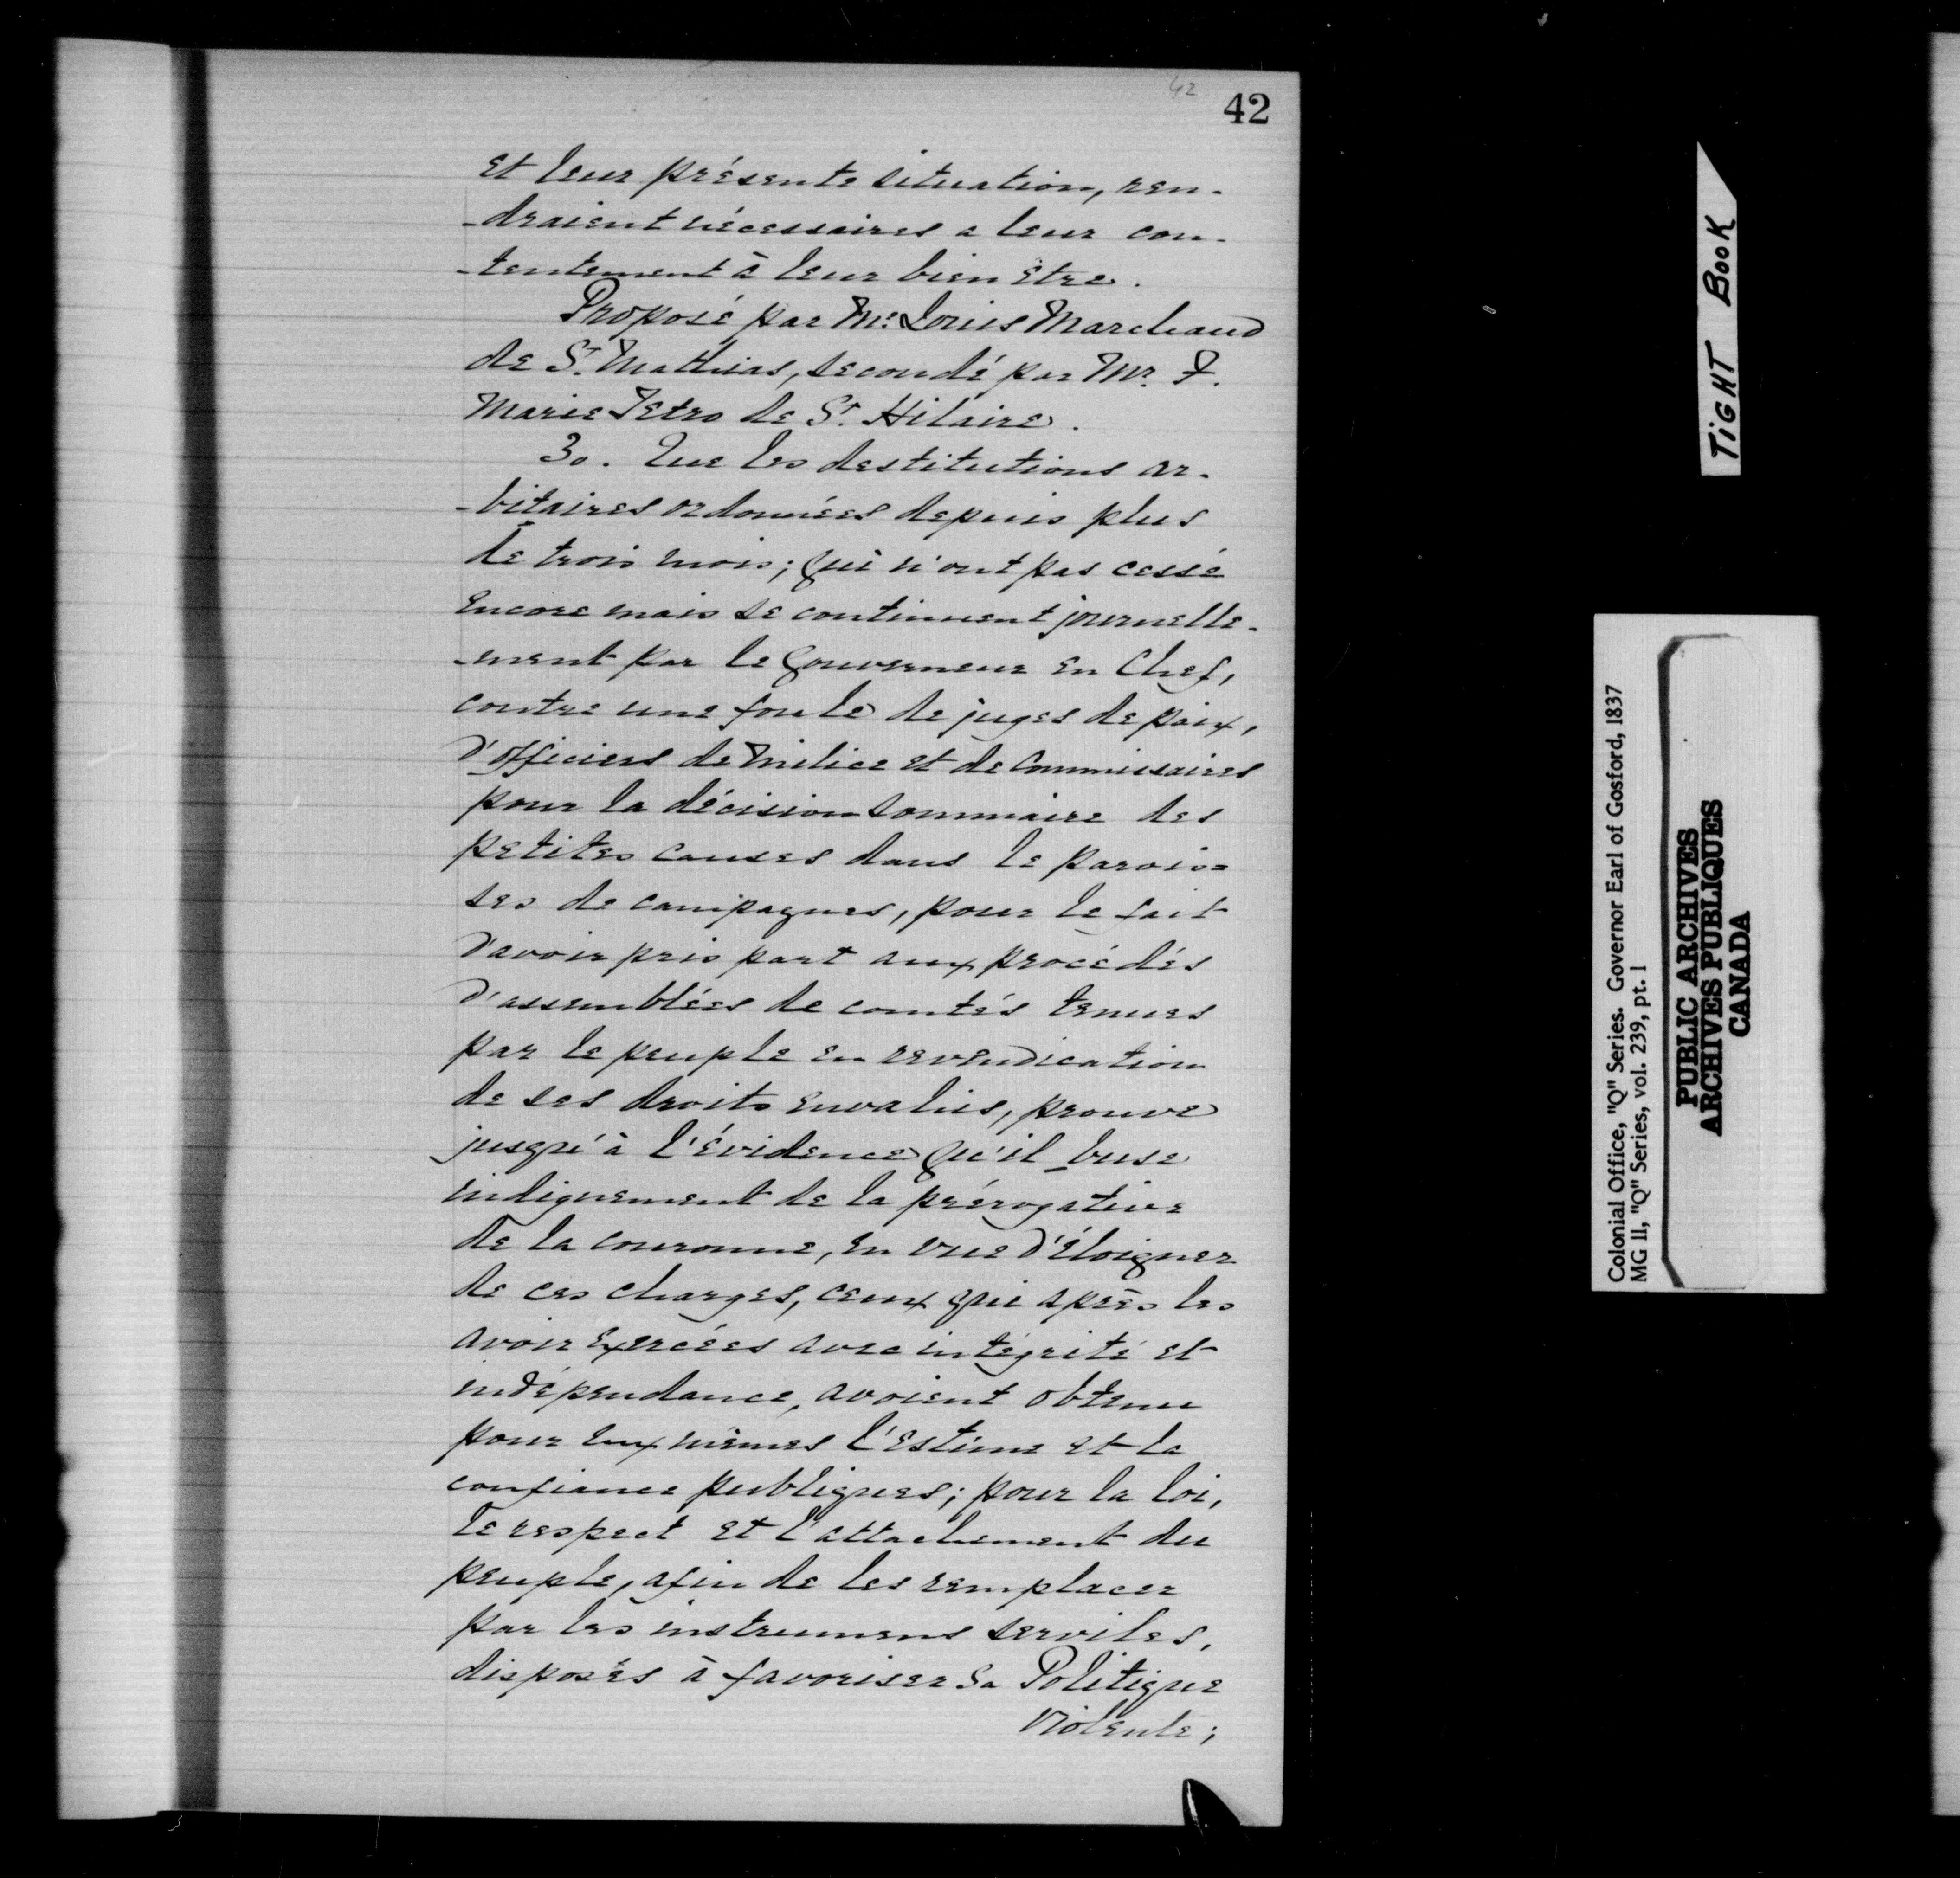 42
42
et leur présente situation, ren-
-draient nécessaires a leur con-
-tentement à leur bien être.
Proposé par Mr. Louis Marchand
de St. Mathias, secondé par Mr. F.
Marie Tetro de St. Hilaire.
3o. Que les destitutions ar-
-bitaires ordonnées depuis plus
de trois mois; qui n'ont pas cessé
encore mais se continuent journelle-
-ment par le Gouverneur en Chef,
contre une foule de juges de paix,
d'Officiers de Milice et de Commissaires
pour la décision sommaire des
petites causes dans le parois=
ses de campagnes, pour le fait
d'avoir pris part aux procédés
d'assemblées de comtés tenues
par le peuple en revendication
de ses droits envahis, prouve
jusqu'à l'évidence qu'il buse
indignement de la prérogative
de la couronne, en vue d'éloigner
de ces charges, ceux qui après les
avoir exercées avec intégrité et
indépendance, avoient obtenu
pour eux mêmes l'estime et la
confiance publiques; pour la loi,
le respect et l'attachement du
peuple, afin de les remplacer
par les instrumens serviles,
disposés à favoriser sa Politique
violente;
TIGHT BOOK
Colonial Office, "Q" Series. Governor Earl of Gosford, 1837
MG 11, "Q" Series, vol. 239, pt. 1
PUBLIC ARCHIVES
ARCHIVES PUBLIQUES
CANADA